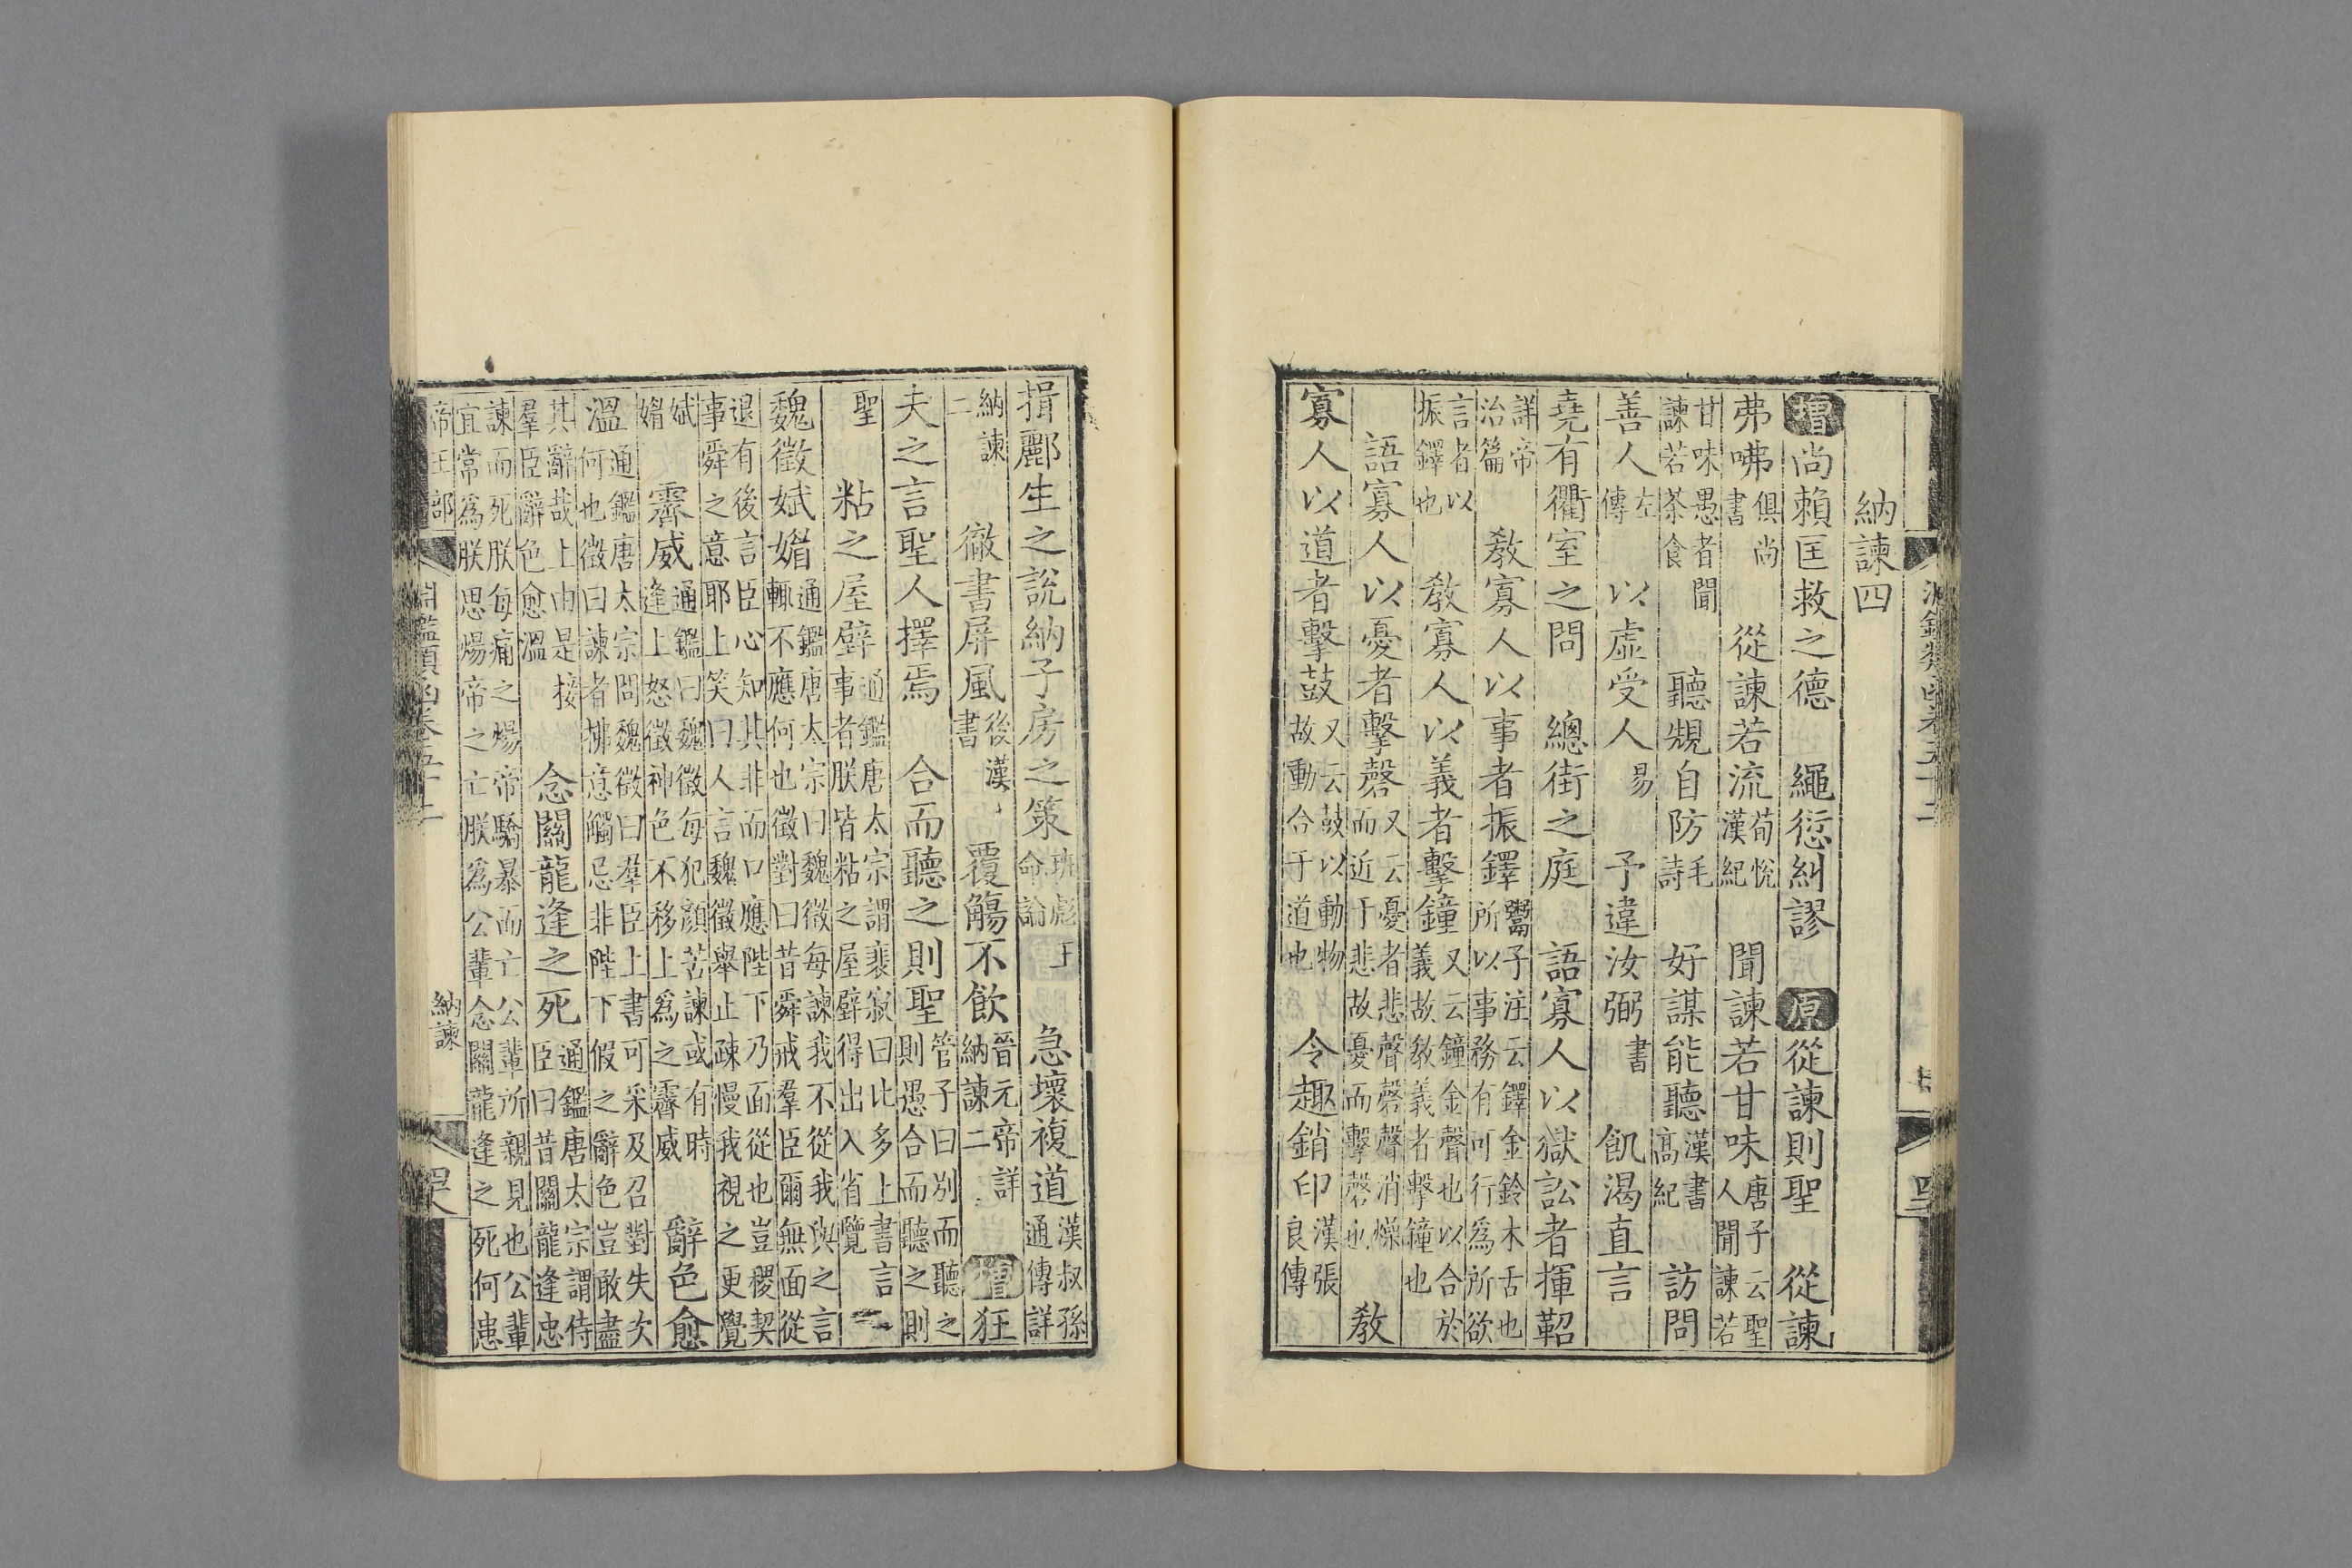 納諫四
增尚賴匡救之德 繩愆糾謬 原從諫則聖 從諫
弗咈俱尚書 從諫若流荀悅漢紀 聞諫若甘味唐子云聖人聞諫若
甘味愚者聞諫若荼食 聽覘自防毛詩 好謀能聽漢書高紀 訪問
善人左傳 以虛受人易 予違汝弼書 飢渴直言
堯有衢室之問 總街之庭 語寡人以獄訟者揮鞀
詳帝治篇 敎寡人以事者振鐸鬻子注云鐸金鈴木舌也所以事務有可行爲所欲
言者以振鐸也 敎寡人以義者擊鐘又云鐘金聲也以合於義故敎義者擊鐘也
語寡人以憂者擊磬又云憂者悲聲磬聲消燥而近于悲故憂而擊磬也 敎
寡人以道者擊鼓又云鼓以動物故動合于道也 令趣銷印漢張良傳
揖酈生之說納子房之策班彪王命論 急壞複道漢叔孫通傳詳
納諫二 徹書屏風後漢書 覆觴不飲晉元帝詳納諫二 增狂
夫之言聖人擇焉 合而聽之則聖管子曰別而聽之則愚合而聽之則
聖 粘之屋壁通鑑唐太宗謂裴寂曰比多上書言事者朕皆粘之屋壁得出入省覽
魏徵娬媚通鑑唐太宗曰魏徵每諫我不從我與之言輒不應何也徵對曰昔舜戒羣臣爾無面從
退有後言臣心知其非而口應陛下乃面從也豈稷契事舜之意耶上笑曰人言魏徵舉止疎慢我視之更覺
娬媚 霽威通鑑曰魏徵每犯顏苦諫或有時逢上怒徵神色不移上爲之霽威 辭色愈
溫通鑑唐太宗問魏徵曰羣臣上書可采及召對失次何也徵曰諫者拂意觸忌非陛下假之辭色豈敢盡
其辭哉上由是接羣臣辭色愈溫 念關龍逢之死通鑑唐太宗謂侍臣曰昔關龍逢忠
諫而死朕每痛之煬帝驕暴而亡公輩所親見也公輩宜常爲朕思煬帝之亡朕爲公輩念關龍逢之死何患
帝王部 淵鑑類函卷五十二 納諫